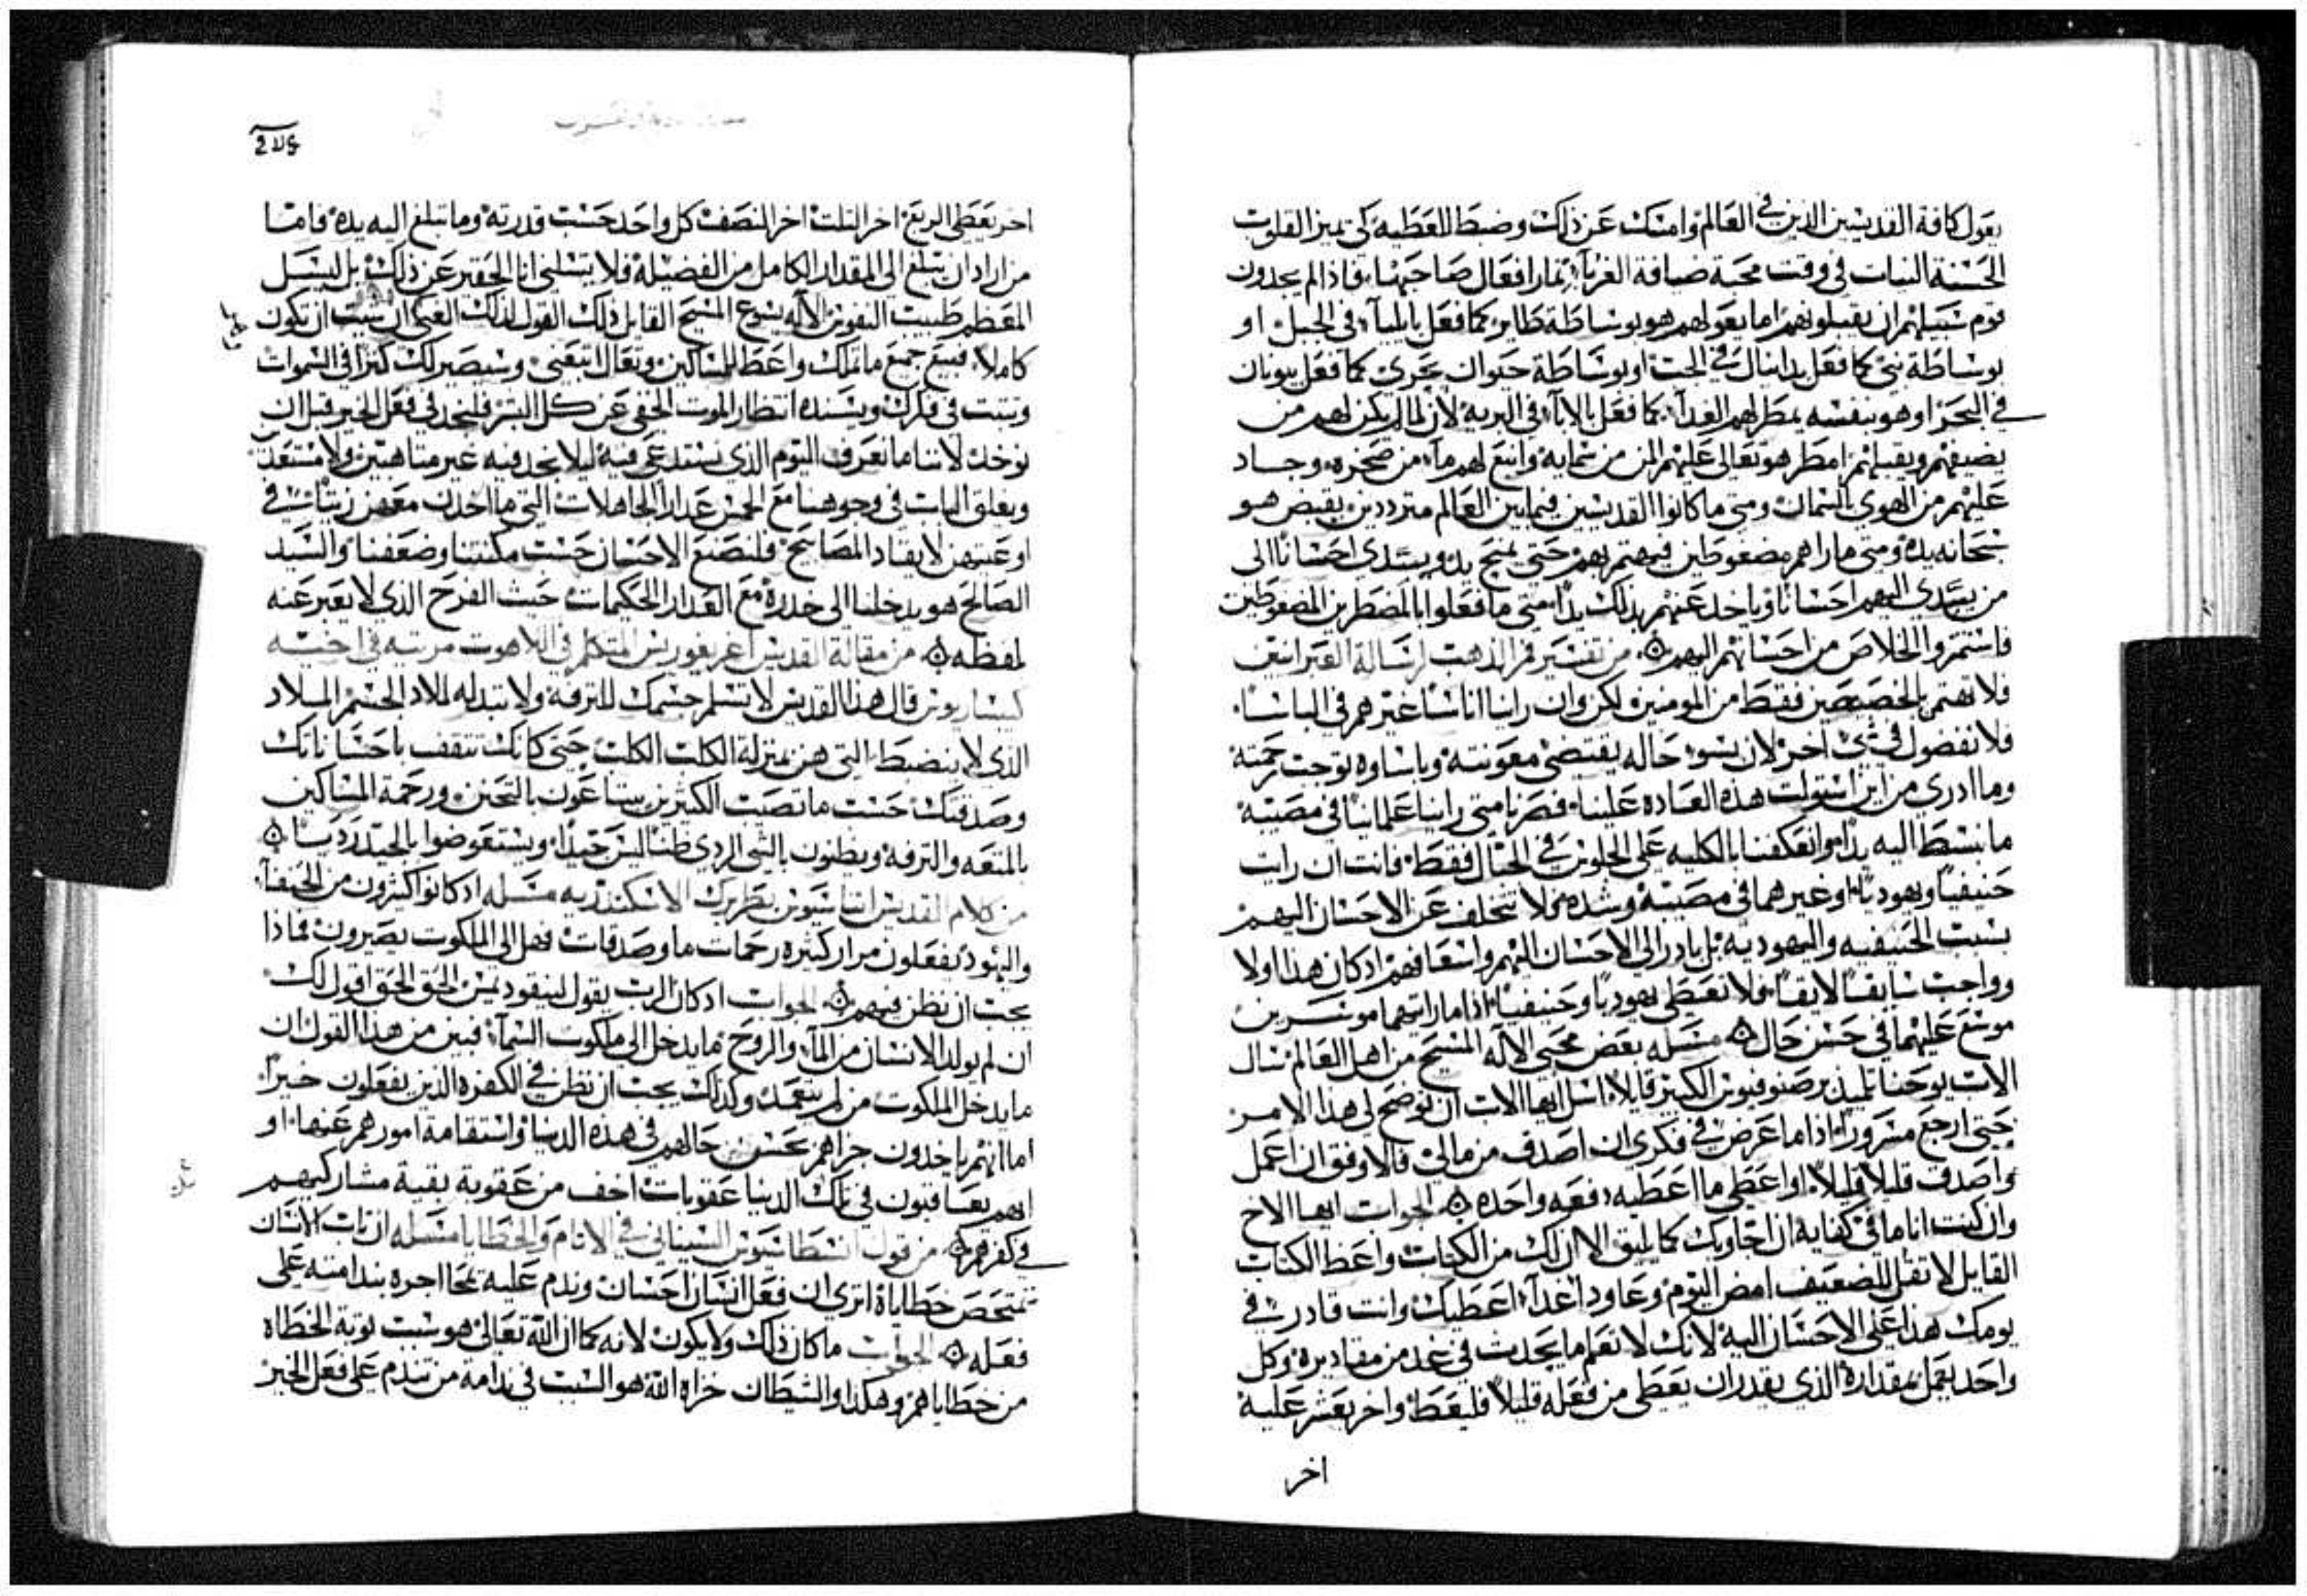 يعول كافة القديسين الذين في العالم وامسك عن ذلك وضبط للعطيه كي تميز القلوب
الحسنة النيات في وقت محبة ضيافة الغربآ ثمار افعال صاحبها، فاذا لم يجدون
قوم سبيلهم ان يقبلونهم اما يعولهم هو بوساطة طاير كما فعل بايليآ في الجبل او
بوساطة نبي كما فعل بدانيال في الجب او بوساطة حيوان بحري كما فعل بيونان
في البحر او هو بنفسه يمطر لهم الغدآ، كما فعل بالابآء في البرية لان لما لم يكن لهم من
يضيفهم ويقبلهم امطر هو تعالى عليهم المن من سمايه وانبع لهم مآء من صخره، وجاد
عليهم من الهوى بالسمان ومتى ما كانوا القديسين فيما بين العالم مترددين يقبض هو
سبحانه يده ومتى ما راهم مضغوطين فيهتم بهم حتى يمنح يد ويسدي احسانا الى
من يسدي اليهم احسانا وياخد عنهم بذلك بدا متى ما فعلوا بالمضطرين المضغوطين
فاستمروا الخلاص من احسانهم اليهم ۞ من تفسير فم الذهب لرسالة العبرانيين
فلا تهتم بالخصيصين فقط من المومنين لكن وان راينا اناسا غيرهم في الباسا،
فلا نفضول في شي اخر لان بسوء حاله يقتضي معونته وباساوه توجب رحمته
وما ادري من اين استولت هذه العاده علينا فصرنا متى راينا علمانيا في مصيبة
ما نبسط اليه يدا وانعكفنا بالكليه على الجلوس في الجبال فقط فانت ان رايت
حنيفيا ويهوديا او غيرهما في مصيبة وشده فلا تتخلف عن الاحسان اليهم
بسبب الحنيفيه واليهوديه بل بادر الى الاحسان اليهم واسعافهم اد كان هذا اولا
وواجب سابقا لايقا، فلا تعطي يهوديا وحنيفيا، اذا ما رايتهما موسرين
موسع عليهما في حسن حال ۞ مسله بعض محبي الاله المسيح من اهل العالم سال
الاب يوحنا تلميذ برصنوفيوس الكبير قايلا، اسل ايها الاب ان توضح لي هذا الامر
حتى ارجع مسرورا، اذا ما عرض في فكري ان اصدف من مالي، فالاوفق ان اعمل
واصدف قليلا قليلا او اعطي ما اعطيه دفعه واحده ۞ الجواب ايها الاخ
وان كنت انا ما في كفاية ان اجاوبك كما يليق الا ان لك من الكتاب واعظ الكتاب
القايل لا تقل للضعيف امض اليوم وعاود اغدآ اعطيك وانت قادر في
يومك هذا على الاحسان اليه لانك لا تعلم ما يحدث في غد من مقاديره وكل
واحد يعمل بمقداره الذي يقدر ان يعطي من فعله قليلا فليعط واخر يعشر عليه
اخر
اخر يعطي الربع اخر التلت اخر النصف كل واحد حسب قدرته وما تبلغ اليه يده فاما
من اراد ان يبلغ الى المقدار الكامل من الفضيلة فلا يسلني انا الحقير عن ذلك بل ليسل
المعظم طبيب النفوس الاله يسوع المسيح القايل ذلك القول لذلك الغني ان شيت ان تكون
كاملا، فبيع جميع ما تملك واعط للمساكين وتعال اتبعني وسيصير لك كنزا في السموات
وتبت في فكرك ويسنده انتظار الموت الخفي عن كل البشر فلنجد في فعل الخير قبل ان
نوخد لاننا ما نعرف اليوم الذي نستدعي فيه ليلا نجد فيه غير متاهبين ولا مستعد
ويغلق الباب في وجوهنا مع الخمس عدارا الجاهلات التي ما اخدن معهن زيتا في
اوعيتهن لايقاد المصابيح فلنصنع الاحسان حسب مكنتنا وضعفنا والسيد
الصالح هو يدخلنا الى خدره مع العدارا الحكيمات حيث الفرح الذي لا يعبر عنه
لفظه ۞ من مقالة القديس اغريغوريس المتكلم في اللاهوت مرتيه في اخيه
كيساريوس قال هذا القديس لا تسلم جسمك للترفه ولا تبدله لملاد الجسم الملاد
الذي لا ينضبط التي هن بمنزلة الكلب الكلب حتى كانك تتقف باحساناتك
وصدقتك حسب ما تصيب الكثيرين يبتاعون بالتحنن ورحمة المساكين
بالمتعه والترفه ويظنون بالشي الردي ظنا ليس جيدا، ويستعوضوا بالجيد رديا ۞
من كلام القديس اتناسيوس بطريرك الاسكندريه مسله اد كانوا كثيرون من الحنفآ
واليهود يفعلون مرار كثيره رحمات ما وصدقات فهل الى الملكوت يصيرون فماذا
يجب ان نظن فيهم ۞ الجواب اد كان الرب يقول لنيقوديمس الحق الحق اقول لك
ان لم يولد الانسان من المآء والروح ما يدخل الى ملكوت السمآء، فبين من هذا القول ان
ما يدخل الملكوت من لم يتعمد وكذلك يجب ان نظن في الكفره الذين يفعلون خيرا
اما انهم ياخدون جزاهم بحسن حالهم في هذه الدنيا واستقامة امورهم عنها، او
انهم يعاقبون في تلك الدنيا عقوبات اخف من عقوبة بقية مشاركيهم
في كفرهم ۞ من قول انسطاسيوس السيناني في الاثام والخطايا مسله ان تاب الانسان
تمتحص خطاياه اترى ان فعل انسان احسان وندم عليه تمحا اجره بندامته على
فعله ۞ الجواب ما كان ذلك ولا يكون لانه كما ان الله تعالى هو سبب توبة الخطاه
من خطاياهم وهكذا والشيطان خزاه الله هو السبب في ندامة من تندم على فعل الخير